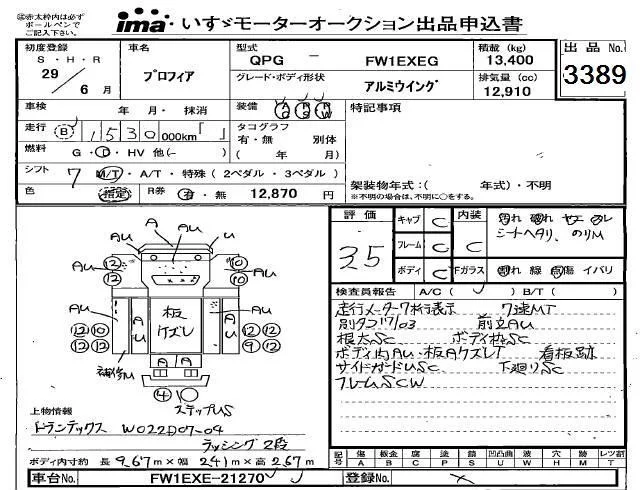 ※赤太枠内は必ず
ボールペンで
ご記入下さい。
ima・いすゞモーターオークション出品申込書
初度登録 車名 型式 積載 (kg) 出品No.
S・H・R QPG － FW1EXEG 13,400 3389
29 プロフィア グレード・ボディ形状 排気量 (cc)
6 月 アルミウイング 12,910
車検 年 月・ 抹消 装備 特記事項
走行 B 1530 000km「 」 タコグラフ
有・無 別体
燃料 G・D・HV 他(- ) ( 年 月)
シフト 7 M/T・A/T・特殊 (2ペダル・3ペダル) 架装物年式:( 年式)・不明
※不明の場合は、不明に○をする。
色 指定 R券 有・無 12,870 円
評価 キャブ C 内装
3.5 フレーム C C シートヘタリ、のりM
ボディ C Fガラス 割れ 線 点傷 イバリ
A
A AU U
AU
AU
12 10
12 10
AU AU AU
12 10 板 12 12
12 12 ケズレ 9 12
補修M AU
4
ステップUS
検査員報告 A/C( ) B/T( )
走行メーター7桁表示 7速MT
別タコ17/03 前立AU
根太SC ボディ枠SC
ボディ内AU・板Aケズレ 看板跡
サイドガードUSC 下廻りSC
フレームSCW
上物情報
トランテックス W022D07-04
ラッシング2段
ボディ内寸約 長 9.67m×幅 2.41m×高 2.67m
記号 傷 板金 腐 塗 錆 凹凸曲 波 穴 跡 レツ割
A B C P S U W H M T
車台No. FW1EXE-21270 登録No.